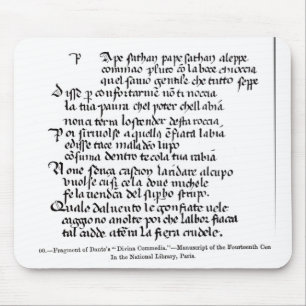 P Ape sathan pape sathan aleppe
comincio pluto cō la boce chioccia
quel sauio gentile che tutto seppe
Disse p confortarme nō ti noccia
la tua paura chel poter chelli abia
non ci terra lo scender desta roccia
Poi si riuolse a quella ēfiata labia
e disse tace maladeo lupo
cōsuma dentro te cola tua rabia
None senza casgion landare al cupo
vuolse cusi cela doue michele
fe la uendeca del supbo strupo.
Quale dal uento le gonfiate uele
caggiono anolte poi che lalbor fiacca
tal cadde a terra la fiera crudele.
60.—Fragment of Dante's "Divina Commedia."—Manuscript of the Fourteenth Cen
In the National Library, Paris.